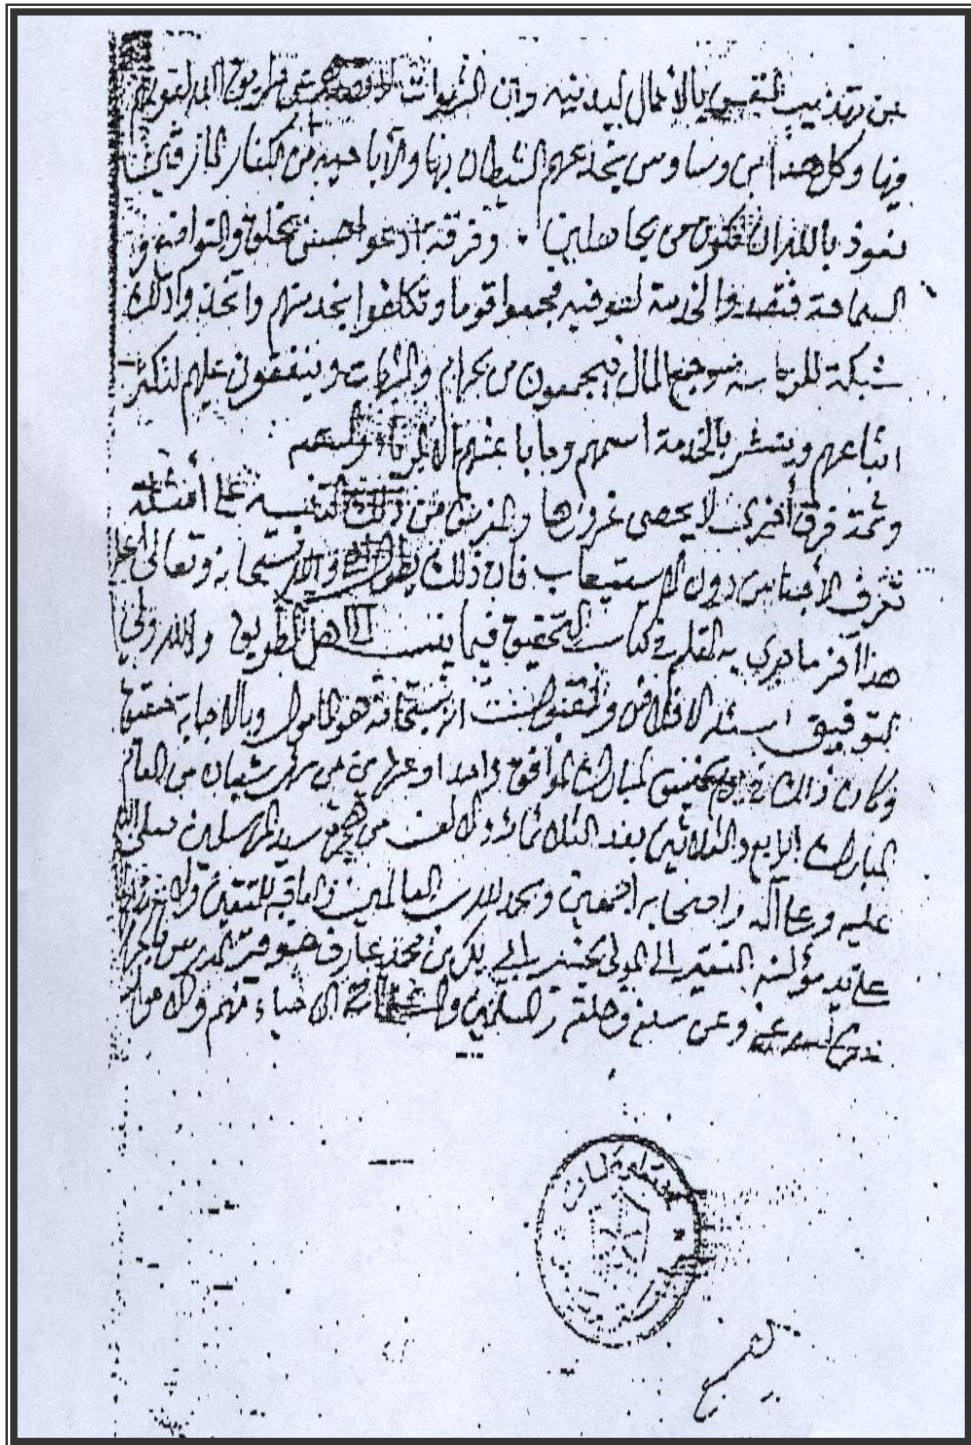 عن تهذيب النفس بالأعمال البدنية وأن الشهوات طريق الله لقوتهم
فيها وكل هذا من وساوس يخدعهم الشيطان بها والأباحية من الكفار المارقين
نعوذ بالله ان نكون من الجاهلين . وفرقة ادعوا حسن الخلق والتواضع و
السماحة فتصدوا لخدمة الصوفية فجمعوا قوما وتكلفوا بخدمتهم واتخذوا ذلك
شبكة للرياسة وجمع المال فيجمعون من الحرام والشبهات وينفقون عليهم لتكثر
اتباعهم وينشر بالخدمة اسمهم وما باعثهم الا الرياء والسمعة
وثمة فرق أخرى لا يحصى غرورها والغرض من ذلك التنبيه على أمثلة
تعرف الأجناس دون الاستيعاب فان ذلك يطول والله سبحانه وتعالى اعلم
هذا آخر ما جرى به القلم في كتاب التحقيق فيما ينسب لاهل الطريق والله ولي
التوفيق اسئله الاخلاص والمقبول انه سبحانه هو المامول وبالاجابة حقيق
وكان ذالك في يوم الخميس المبارك الموافق واحدا وعشرين من شعبان من العام
المبارك الرابع والثلاثين بعد الثلاثمائة والالف من هجرة سيد المرسلين صلى الله
عليه وعلى آله واصحابه اجمعين والحمد لله رب العالمين والعاقبة للمتقين
على يد مؤلفه الفقير الى المولى الخبير بكر بن محمد عارف خوقير المدرس بالحرم
عنه وعن سلفه وخلفه والمسلمين والمسلمات الاحياء منهم والاموات